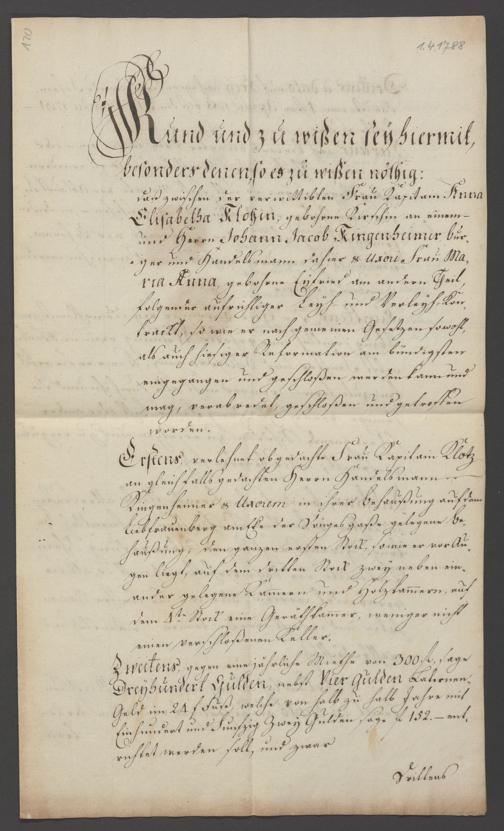 170
1.4.1788
Kund und zu wißen sey hiermit,
besonders denen so es zu wißen nöthig:
daß zwischen der verwittibten Frau Kapitain Anna
Elisabetha Klotzin, gebohrne Kirschin an einem
und Herrn Johann Jacob Kingenheimer bür-
ger und Handelsmann dahier & Uxore Frau Ma-
ria Anna, gebohrne Seyfried am andern Theil,
folgender aufrichtiger Leyh und Verleyh Kon-
trackt, so wie er nach gemeinen Gesetzen sowohl,
als auch hiesiger Reformation am bündigsten
eingegangen und geschloßen werden kann und
mag, verabredet, geschloßen und getroffen
worden.
Erstens, verlehnet obgedachte Frau Kapitain Klotz
an gleichfalls gedachten Herrn Handelsmann
Kingenheimer & Uxorem in ihrer Behaußung auf dem
Liebfrauenberg am Eck der Töngesgaße gelegene Be-
haußung, den ganzen ersten Stock, so wie er vor Au-
gen liegt, auf dem dritten Stock zwey neben ein-
ander gelegene Kamern und Holzkamern, auf
dem 4ten Stock eine Geräthkamer, weniger nicht
einen verschloßenen Keller.
Zweitens gegen eine jährliche Miethe von 300 fl, sage
Dreyhundert Gulden, nebst Vier Gulden Laternen-
Geld im 24 f Fuß, welche von halb zu halb Jahre mit
Einhundert und Funfzig Zwey Gulden sage f 152. – ent-
richtet werden soll, und zwar
Drittens